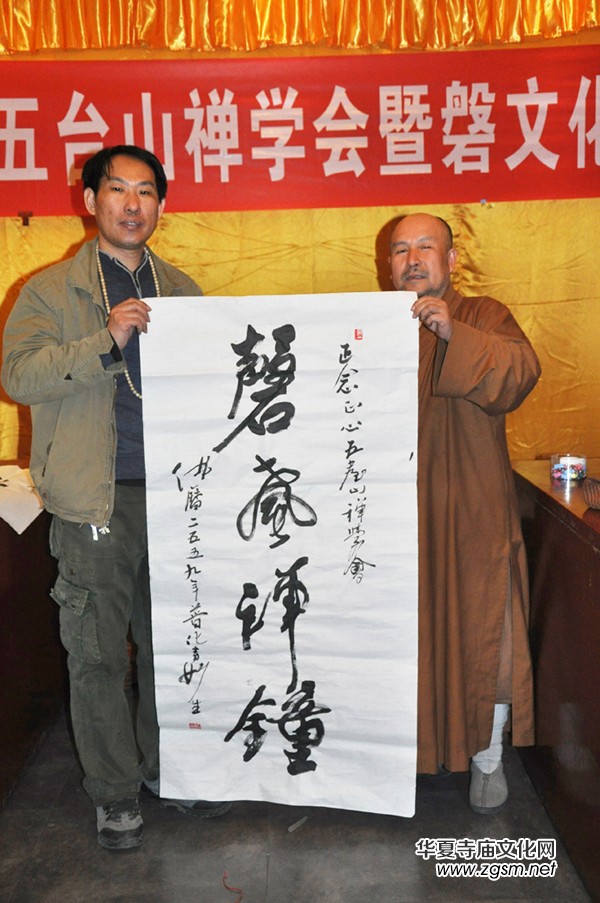 五台山禅学会暨磐文化
正念正心五台山禅学會
磬藝禅鐘
佛曆二五五九年普化寺妙生
华夏寺庙文化网
www.zgsm.net